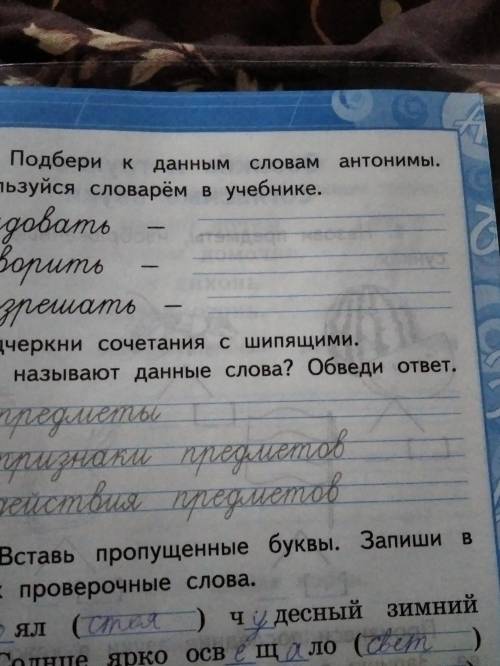 Подбери к данным словам антонимы.
льзуйся словарём в учебнике.
довать –
ворить –
зрешать –
дчеркни сочетания с шипящими.
называют данные слова? Обведи ответ.
предметы
признаки предметов
действия предметов
Вставь пропущенные буквы. Запиши в
х проверочные слова.
о ял (стоя) чудесный зимний
Солнце ярко освещало (свет)